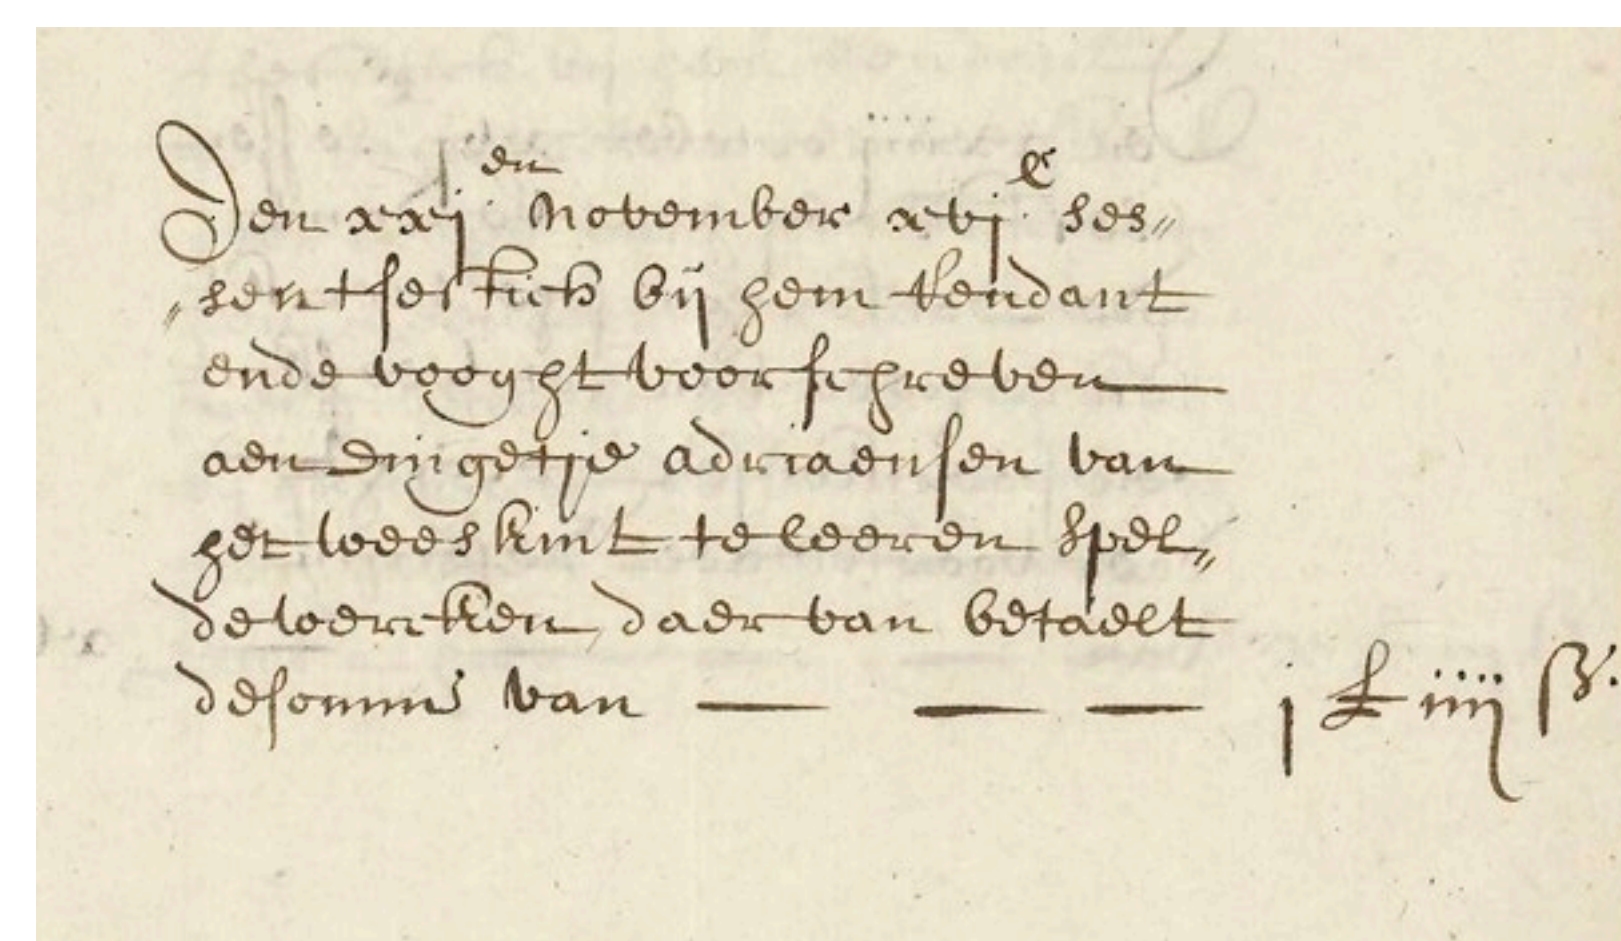 Den xxj en November xvj C ses-
sentsestich bij hem Rendant
ende vooght voorschreven
aen Dingetje adriaensen van
het weeskint te leeren spel-
dewercken daer van betaelt
de somme van — — — j £ iiij ß.